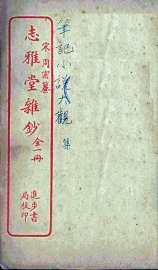 筆記小說大觀 集
宋周密纂
志雅堂雜鈔
全一冊
進步書
局校印